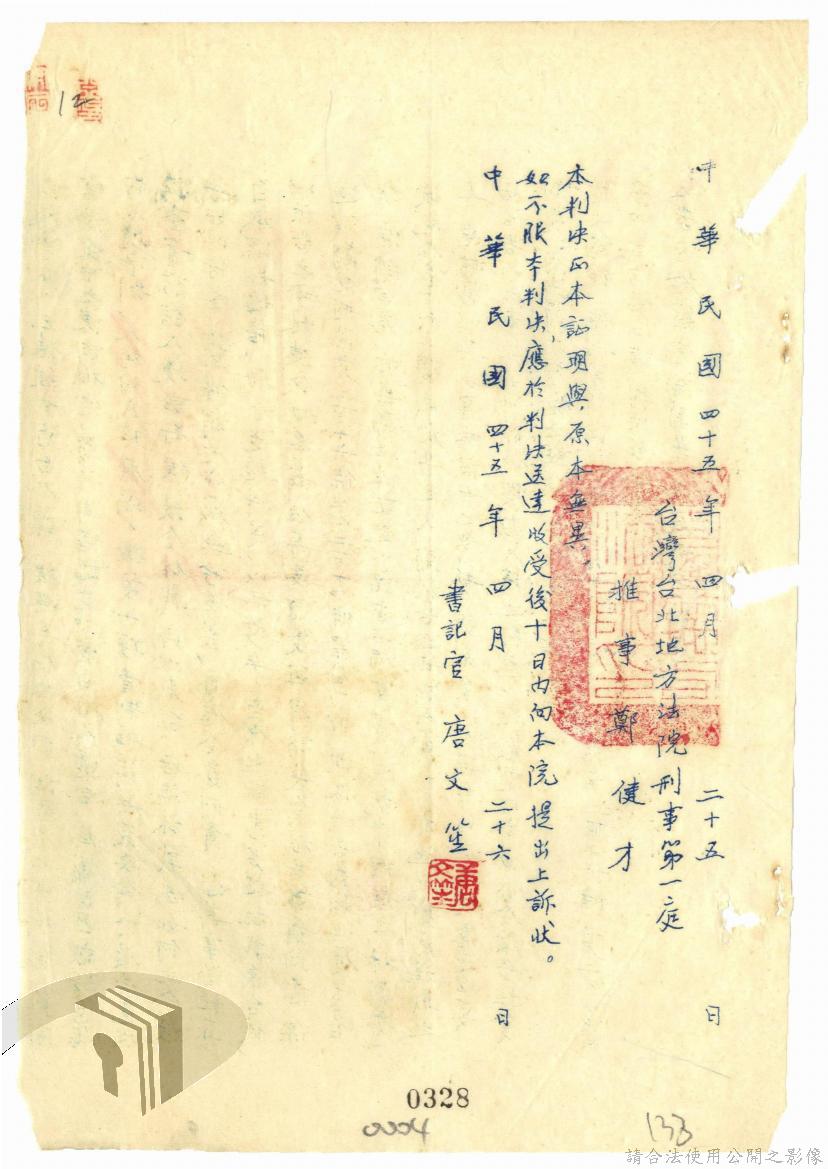 中華民國四十五年四月二十五日
台灣台北地方法院刑事第一庭
推事鄭健才
本判決正本証明與原本無異。
如不服本判決,應於判決送達收受後十日內向本院提出上訴狀。
中華民國四十五年四月二十六日
書記官唐文笙
0328
0004
133
請合法使用公開之影像